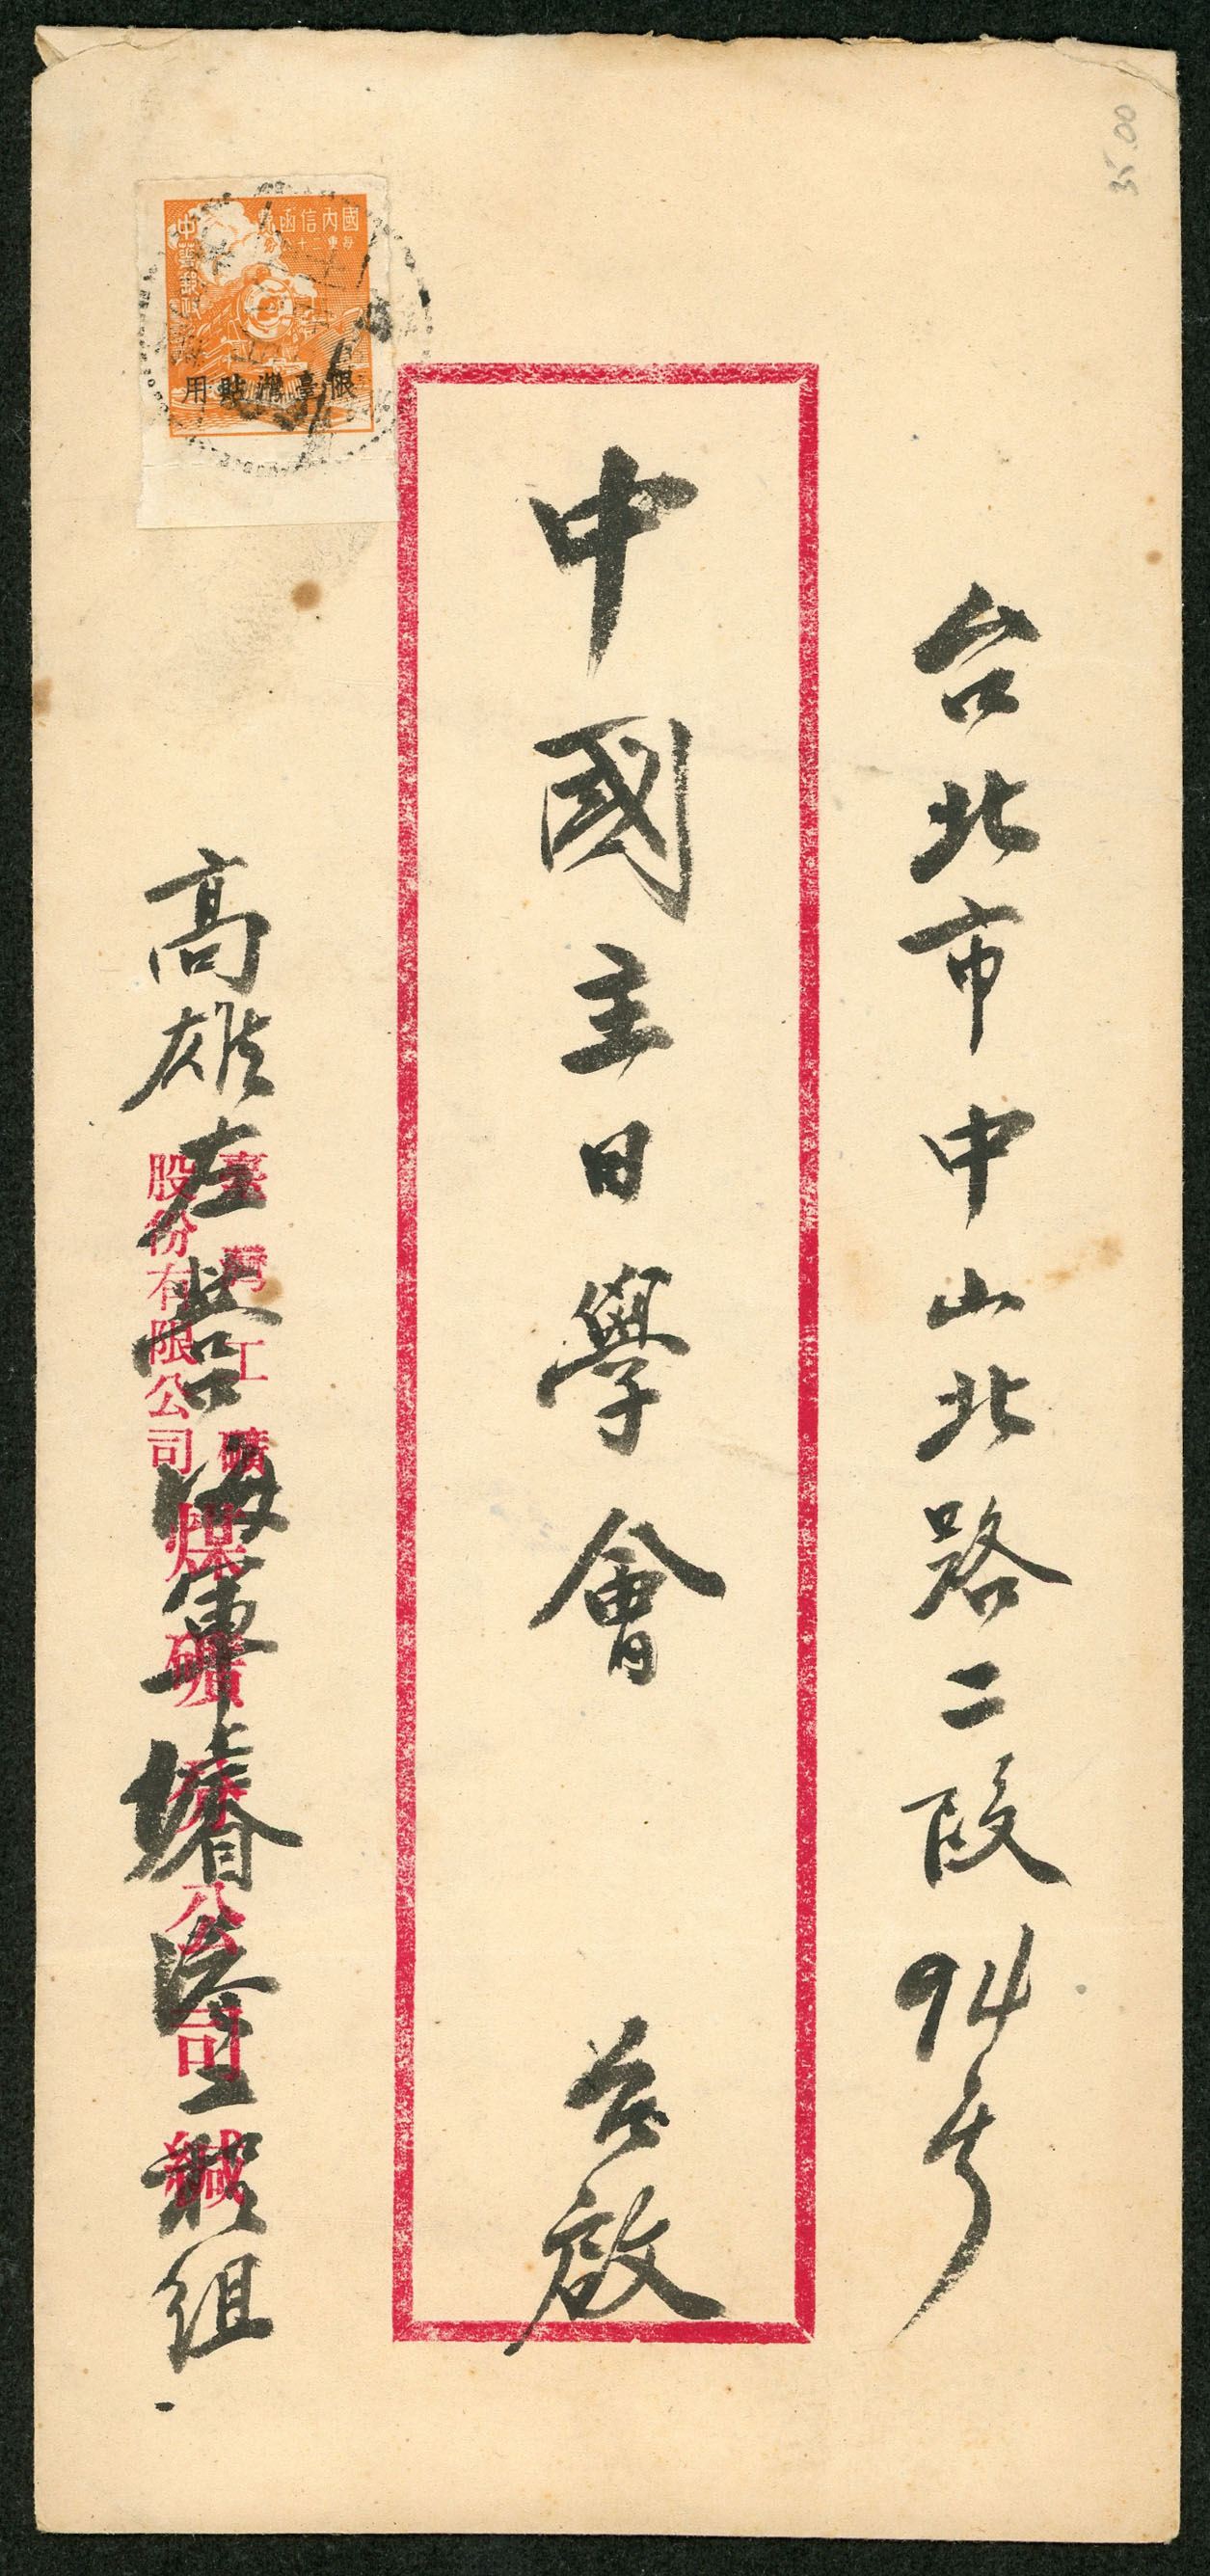 台北市中山北路二段94号
中國主日學會
公啟
高雄左營海軍
組
臺灣工礦
股份有限公司
煤礦分公司緘
國內信函費
每重二十公分
中華郵政
限臺灣貼用
35.00